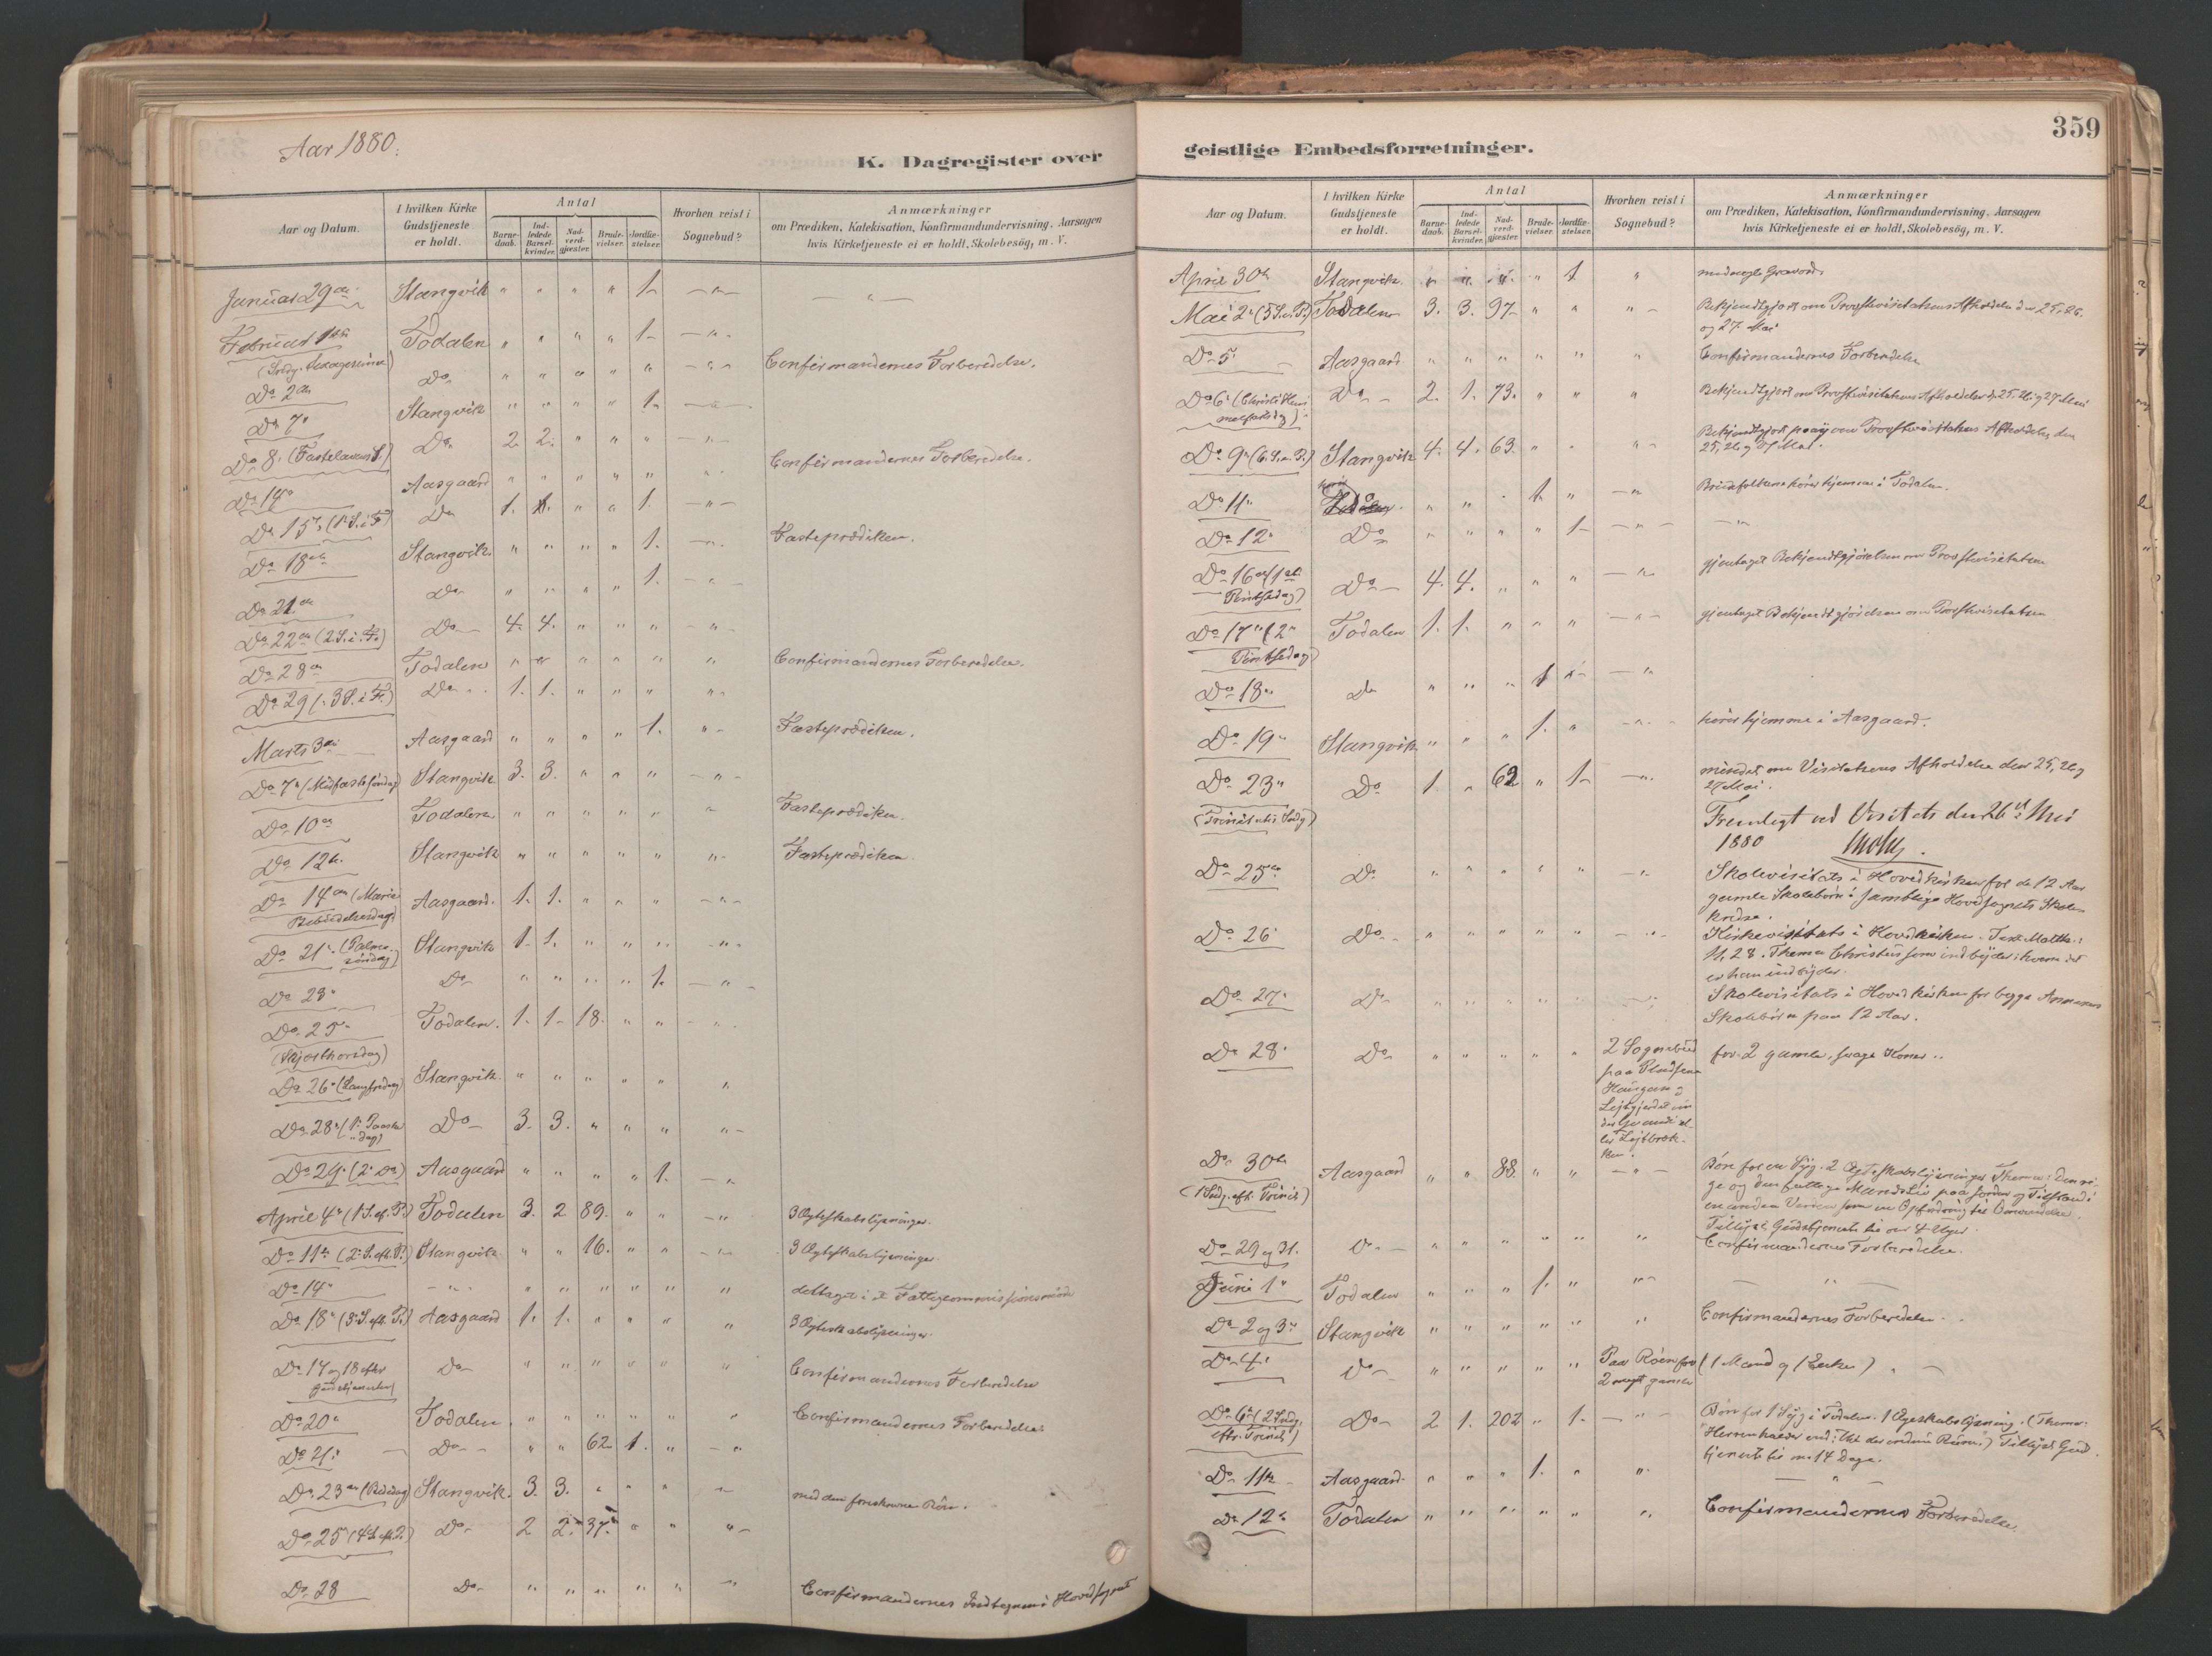 Aar 1880.
K. Dagregister over
Aar og Datum.
I hvilken Kirke Gudstjeneste er holdt.
Antal
Barne-daab.
Ind-ledede Barsel-kvinder.
Nad-verd-gjæster.
Brude-vielser.
Jordfæ-stelser.
Hvorhen reist i Sognebud?
Anmærkninger
om Prædiken, Katekisation, Konfirmandundervisning, Aarsagen
hvis Kirketjeneste ei er holdt, Skolebesög, m. V.
Januar 29de Stangvik " " " " 1. — " — — " —
Februar 1ste Todalen " " " " 1. — " —
(Sndg. Sexagesima)
Do 2den Do " " " " " — " — Confirmandernes Forberedelse.
Do 7de Stangvik " " " " 1. — " —
Do 8. (Fastelavens S.) Do 2. 2. " " " — " —
Do 14de Aasgaard " " " " " " Confirmandernes Forberedelse.
Do 15. (1 S. i F.) Do 1. 1. " " 1. — " —
Do 18de Stangvik " " " " 1. — " Fasteprædiken.
Do 21de Do " " " " 1. — " —
Do 22de (2 S. i F.) Do 4. 4. " " " — " —
Do 28de Todalen " " " " " " Confirmandernes Forberedelse.
Do 29 (3 S. i F.) Do 1. 1. " " " " —
Marts 3die Aasgaard " " " " 1. " — Fasteprædiken.
Do 7de (Midfastesöndag) Stangvik 3. 3. " " " — " —
Do 10de Todalen " " " " " " Fasteprædiken.
Do 12te Stangvik " " " " " " Fasteprædiken.
Do 14de (Mariæ Aasgaard. 1. 1. " " " — " —
Bebudelsesdag)
Do 21. (Palme- Stangvik 1. 1. " " " — " —
söndag)
Do 23. Do " " " " 1. — " —
Do 25. Todalen. 1. 1. 18. " " — "
(Skjærthorsdag)
Do 26. (Langfredag) Stangvik. " " " " " "
Do 28. (1. Paaske Do 3. 3. " " " " —
dag)
Do 29. (2. Do) Aasgaard " " " " 1. — "
April 4. (1 S. ef. P.) Todalen 3. 2 89. " " — " 3 Ægteskabslysninger.
Do 11te (2. S. eft. P.) Stangvik " " 16. " " — " — 3 Ægteskabslysninger.
Do 14. — " — " " " " " " deltaget i et Fattigcommissionsmöde
Do 18. (3. S. eft. P.) Aasgaard 1. 1. " " " " 3 Ægteskabslysninger.
Do 17 og 18 efter Do " " " " " " Confirmandernes Forberedelse
Gudstjenesten)
Do 20. Todalen " " " " " " Confirmandernes Forberedelse
Do 21. Do " " 62. 1. " — "
Do 23de (Bededag) Stangvik. 3. 3. " " " " med den foreskrevne Bön.
Do 25 (4 S. eft. P.) Do 2 2. 37. " " " —
Do 28 Do " " " " " " Confirmandernes Indtegnen i Hovedsognet
359
geistlige Embedsforretninger.
Aar og Datum.
I hvilken Kirke Gudstjeneste er holdt.
Antal
Barne-daab.
Ind-ledede Barsel-kvinder.
Nad-verd-gjæster.
Brude-vielser.
Jordfæ-stelser.
Hvorhen reist i Sognebud?
Anmærkninger
om Prædiken, Katekisation, Konfirmandundervisning, Aarsagen
hvis Kirketjeneste ei er holdt, Skolebesög, m. V.
April 30te Stangvik. " " " " 1. "
Mai 2. (5 S. e. P.) Todalen 3. 3. 97. " " " — Bekjendtgjort om Provstevisitatsens Afholdelse den 25, 26.
og 27 Mai
Do 5. Aasgaard " " " " " " Confirmandernes Forberedelse
Do 6. (Christi Him- Do 2. 1. 73. " " " Bekjendtgjort om Provstevisitatsens Afholdelse d. 25. 26. og 27 Mai
melfartsdag)
Do 9. (6. S. e. P.) Stangvik 4. 4. 63. " " " — Bekjendtgjort paany om Provstevisitatsens Afholdelse den
25, 26 og 27 Mai.
Do 11. " " " 1. " — " Brudefolkene hörer hjemme i Todalen.
Do 12. Do " " " " 1. — " — — " —
Do 16de (1ste Do 4. 4. " " " — " gjentaget Bekjendtgjörelsen om Provstevisitatsen
Pintsedag)
Do 17. (2. Todalen 1. 1. " " " — " — gjentaget Bekjendtgjörelsen om Provstevisitatsen
Pintsedag)
Do 18. Do " " " 1 " — "
Do 19. Stangvik " " " 1. " — " — hörer hjemme i Aasgaard.
Do 23. Do 1. " 62 " 1. — " mindet om Visitatsens Afholdelse den 25, 26 og
27 Mai.
(Trinitatis Sndg)
Fremlagt ved Visitats den 26de Mai
1880
Do 25de Do " " " " " — " Skolevisitats i Hovedkirken for de 12 Aar
gamle Skolebörn i samtlige Hovedsognets Skole-
kredse.
Do 26. Do " " " " " — " Kirkevisitats i Hovedkirken. Text Matth.:
11, 28. Thema Christus som indbyder: hvem det
er han indbyder.
Do 27. Do " " " " " — " Skolevisitats i Hovedkirken for begge Annexers
Skolebörn paa 12 Aar.
Do 28. Do " " " " " 2 Sognebud for 2 gamle, svage Koner.
paa
Do 30te Aasgaard " " 88. " " — " — Bön for en Syg. 2 Ægteskabslysninger Thema: Den ri-
ge og den fattige Mands Liv paa Jorden og Tilstand i
en anden Verden som en Opfordring til Omvendelse.
(1 Sndg. eft. Trinit)
Tillyst Gudstjeneste her om 4 Uger.
Do 29 og 31. Do " " " " " " Confirmandernes Forberedelse.
Juni 1. Todalen " " " 1. " " — — " —
Do 2 og 3. Stangvik " " " " " " Confirmandernes Forberedelse.
Do 4. Do " " " " " Paa Röen for (1 Mand og 1 Enke) " —
2 meget gamle
Do 6. (2 Sndg. Do 2 1. 202 " 1. — " — Bön for 1 Syg i Todalen. 1 Ægteskabslysning. (Thema:
eftr. Trinit)
Tillyst Gud-
tjeneste her om 14 Dage.
Do 11te Aasgaard " " " 1. " " — " —
Do 12. Todalen " " " " " " Confirmandernes Forberedelse